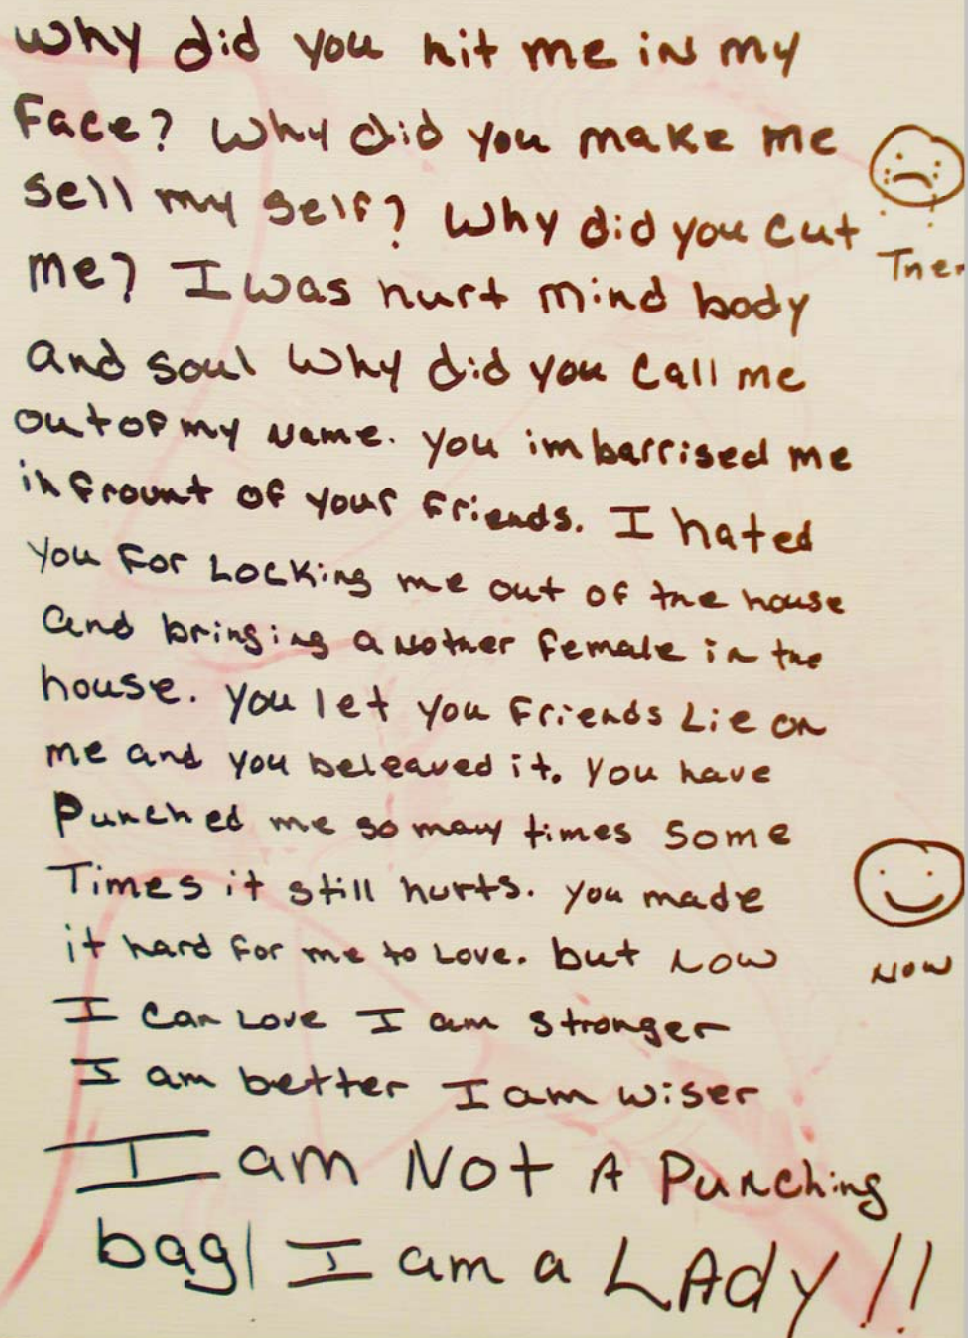 Why did you hit me in my
Face? Why did you make me
sell my self? Why did you cut
Then
me? I was hurt mind body
and soul Why did you call me
out of my name. you imbarrised me
in frount of your friends. I hated
you for Locking me out of the house
and bringing another female in the
house. you let you friends Lie on
me and you beleaved it. you have
Punched me so many times some
Times it still hurts. you made
it hard for me to Love. but now
NOW
I can Love I am stronger
I am better I am wiser
I am Not A Punching
bag! I am a LAdy!!